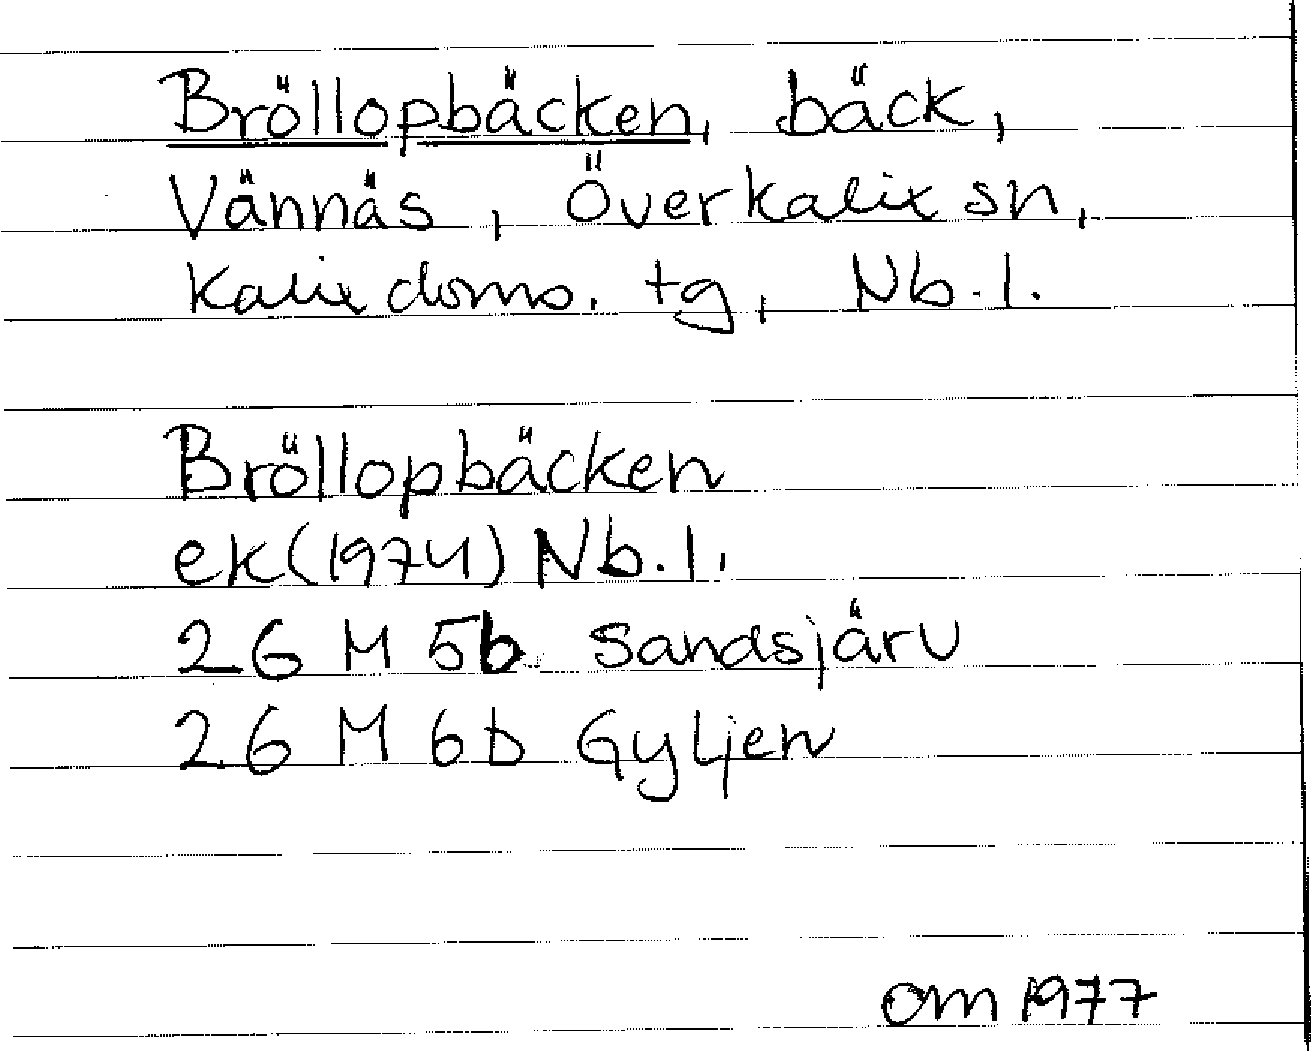 Bröllopbäcken, bäck,
Vännäs, Överkalix sn,
Kalix doms. tg, Nb. l.
Bröllopbäcken
ek(1974) Nb. l.
26 M 5b Sandsjärv
26 M 6b Gyljen
om 1977